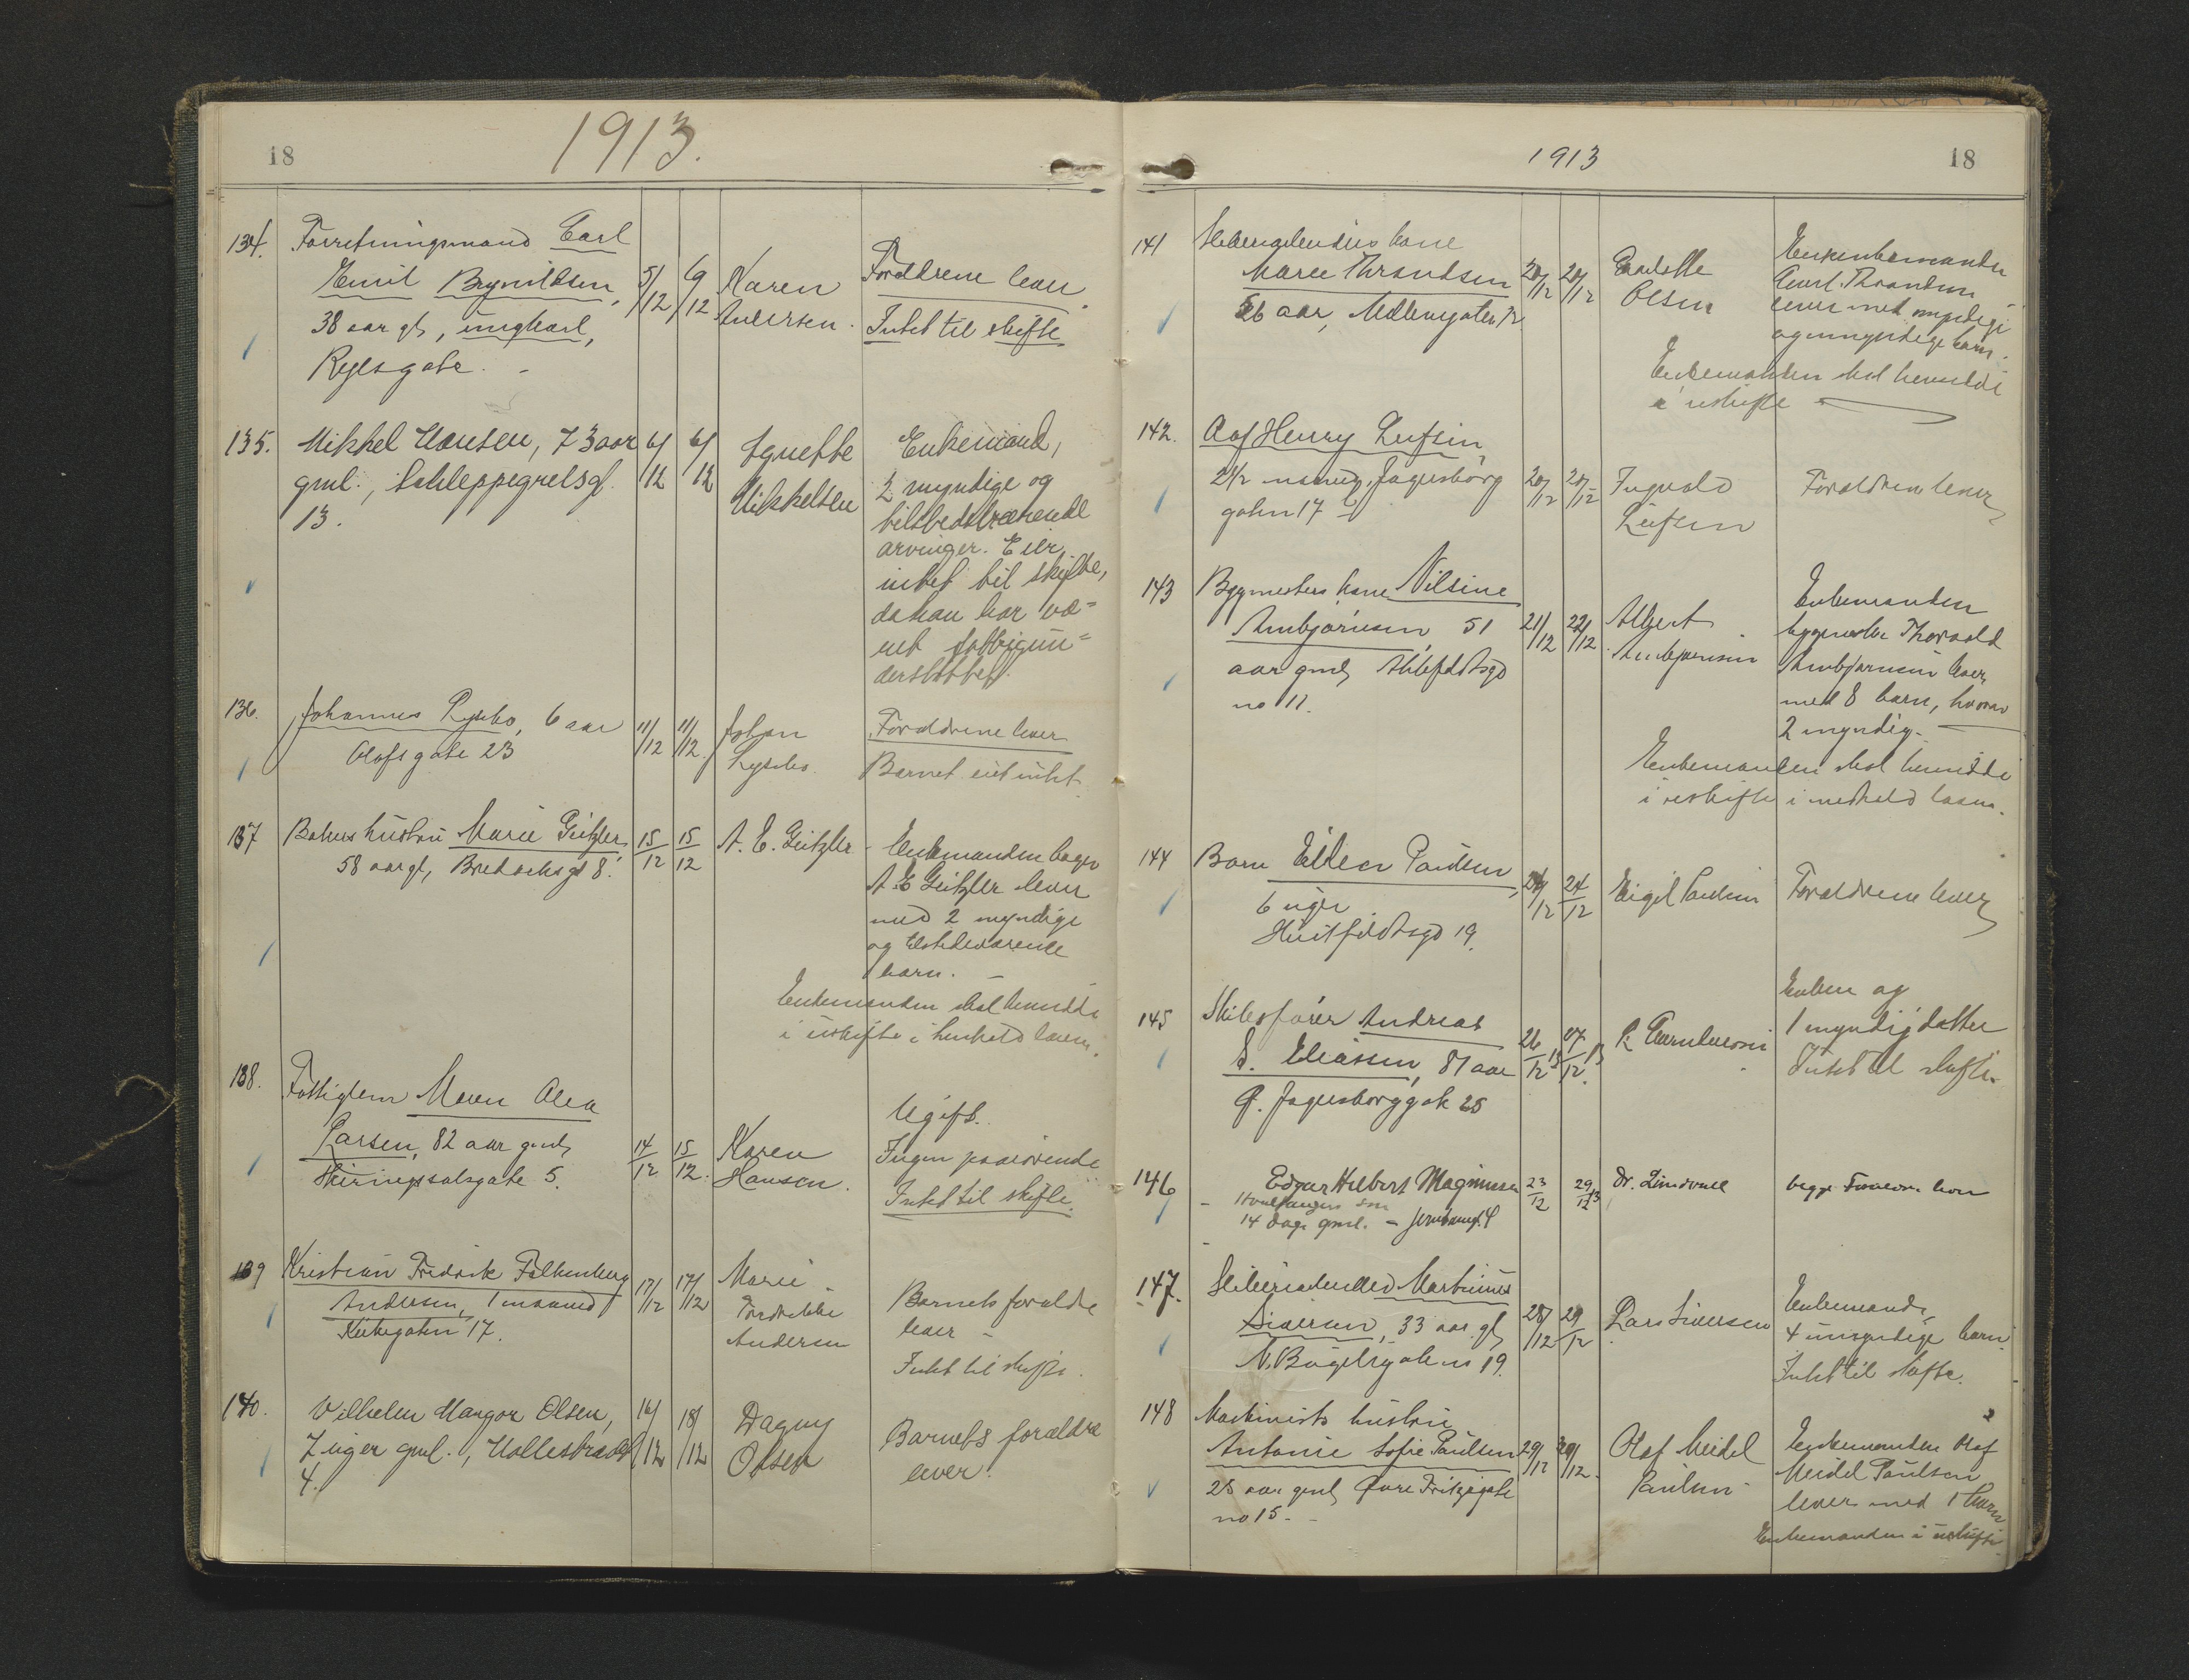 18
1913.
134. Forretningsmand Carl
Emil Brynildsen,
38 aar gl, ungkarl,
Ryesgate.
5/12 6/12
Karen
Andersen.
Forældrene lever.
Intet til skifte
135. Mikkel Hansen, 73 aar
gml., Schleppegrelsg.
13.
6/12 6/12
Agnethe
Mikkelsen
Enkemand,
2 myndige og
tilstedeværende
arvinger. Eier
intet til skifte,
da han har væ=
ret fattigun=
derstøttet.
136. Johannes Lysebo, 6 aar
Olafs gate 23
11/12 11/12.
Johan
Lysebo.
Forældrene lever
Barnet eiet intet.
137 Bakers hustru Marie Geitzler
58 aar gl, Bredochsgt 8.
15/12 15/12
A. E. Geitzler
Enkemanden bager
A E Geitzler lever
med 2 myndige
og tilstedeværende
barn.
Enkemanden skal hensidde
i uskifte i henhold loven.
138. Fattiglem Maren Alea
Larsen, 82 aar gml,
Skiringssalsgate 5.
14/12 15/12.
Karen
Hansen.
Ugift.
Ingen paarørende
Intet til skifte.
139 Kristian Fredrik Falkenberg
Andersen, 1 maaned
Kirkegaten 17.
17/12 17/12
Marie
Fredrikke
Andersen
Barnets forældre
lever
Intet til skifte.
140. Vilhelm Mangor Olsen,
7 uger gml.,
4.
16/12 18/12
Dagny
Olsen
Barnets forældre
lever.
1913
18
141 kone
Marie Thrandsen
56 aar, Møllergaten 12
20/12 20/12
Olsen
Enkemanden
Thrandsen
lever med myndige
og umyndige barn.
Enkemanden skal hensidde
i uskifte
142. Aaf Henry Leufsen,
2 1/2 maaned, Jegersborg
gaten 17
20/12 20/12
Ingvald
Leufsen
Forældrene lever
143 Bygmesters kone Nilsine
Arnbjørnsen, 51
aar gml, Ahlefeldtsgd
no 11.
21/12 22/12
Albert
Arnbjørnsen
Enkemanden
bygmester Thorvald
Arnbjørnsen lever
med 8 barn, hvorav
2 myndig.
Enkemanden skal hensidde
i uskifte i medhold loven.
144 Barn Eiler Paulsen,
6 uger
Huitfeldtsgd 19.
24/12 24/12
Eigil Paulsen
Forældrene lever
145 Skibsfører Andreas
S. Eliassen, 87 aar
g. Jegersborggate 25
26/12 13 27/12 13.
Enken og
1 myndig datter
Intet til skifte.
146 Edgar Helbert Magnussen
Hvalfangers søn
14 dage gml. - Jernbaneg. 4
23/12 29/12 13
Dr. Lindvall
begge Forældre lever
147. Martinius
Siversen, 33 aar gl,
N. Bøgelsgaten 19.
28/12 29/12
Lars Siversen
Enkemand,
4 umyndige barn.
Intet til skifte.
148 Maskinists hustru
Antonie Sofie Paulsen
25 aar gml, Øvre Fritzøgate
no 15.
29/12 30/12.
Olaf Meidel
Paulsen
Enkemanden Olaf
Meidel Paulsen
lever med 1 barn
Enkemanden i uskifte.